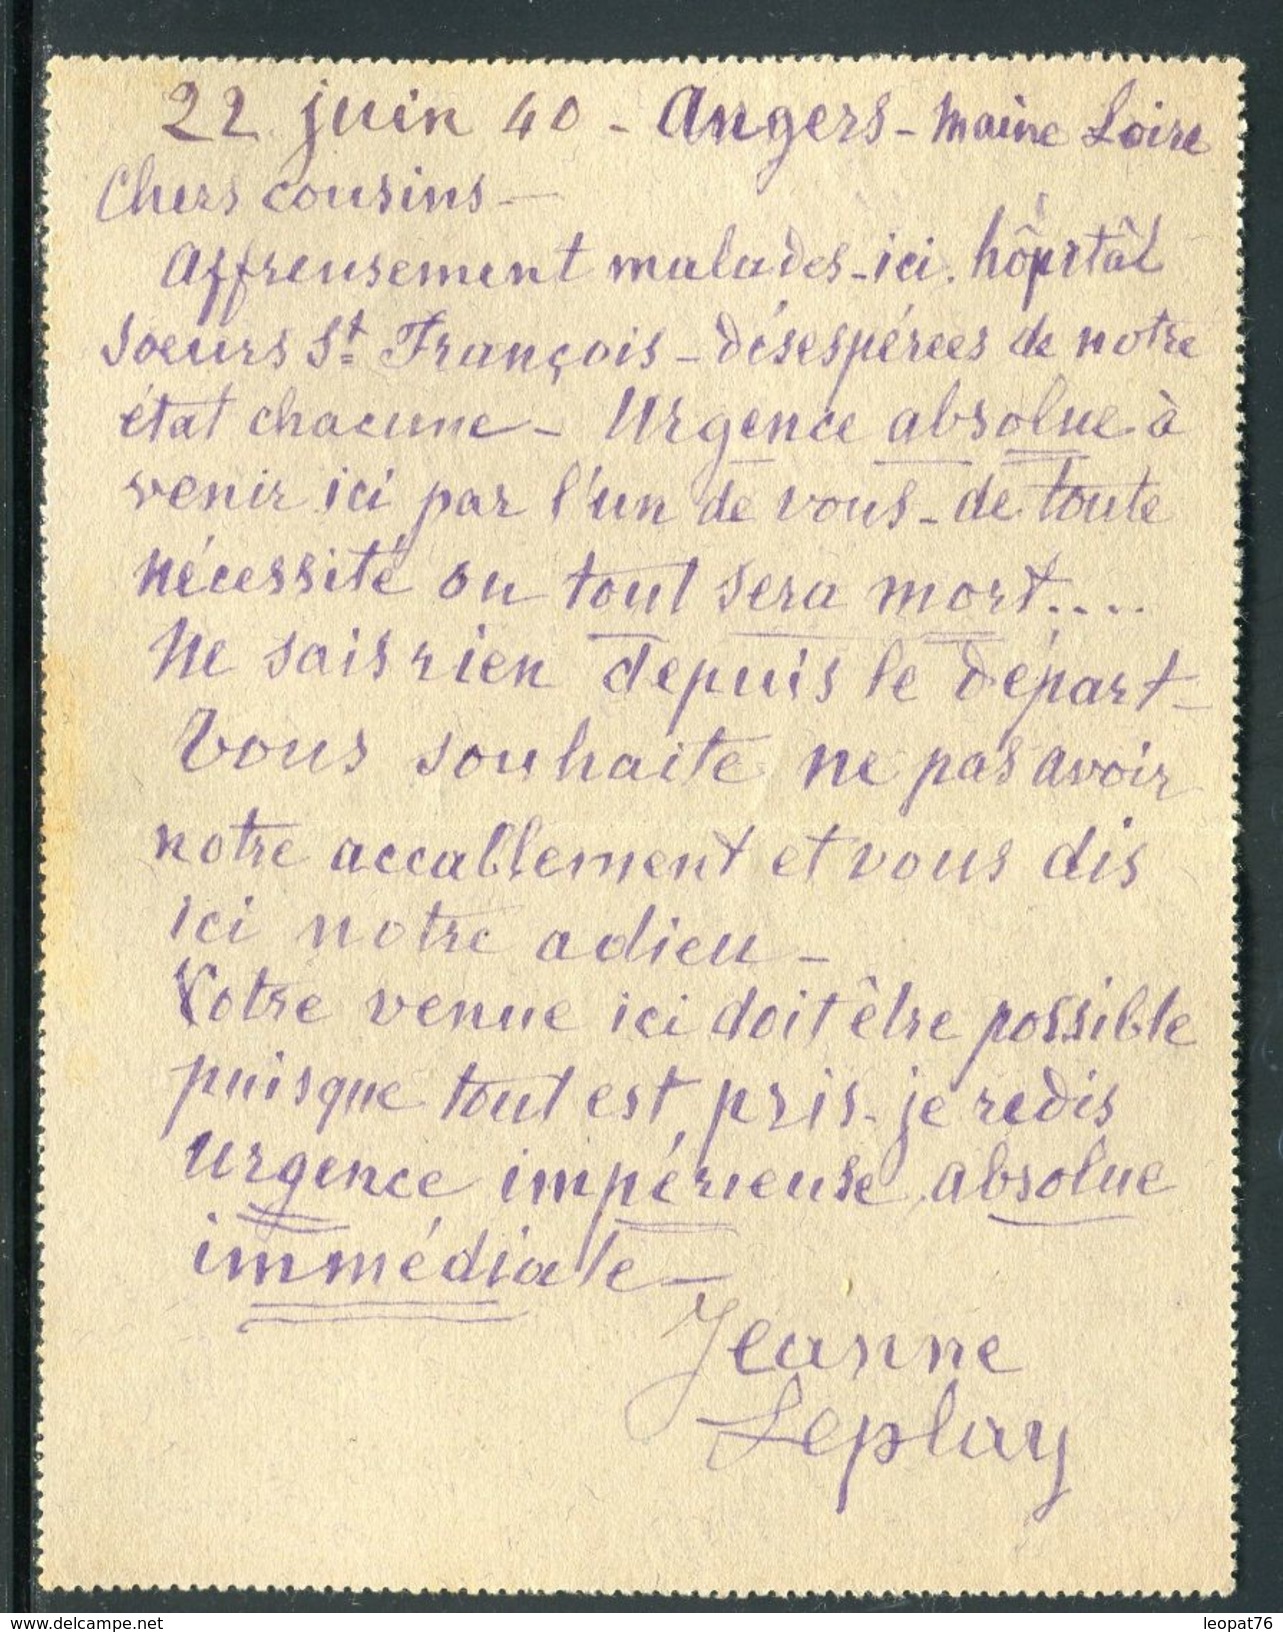 22 juin 40 - Angers - Maine Loire
Chers cousins -
Affreusement malades - ici. hôpital
Soeurs St François - désespérées de notre
état chacune - Urgence absolue à
venir ici par l'un de vous - de toute
nécessité ou tout sera mort....
Ne sais rien depuis le départ -
Vous souhaite ne pas avoir
notre accablement et vous dis
ici notre adieu -
Votre venue ici doit être possible
puisque tout est pris - je redis
urgence impérieuse absolue
immédiate -
Jeanne
Leplay
leopat76